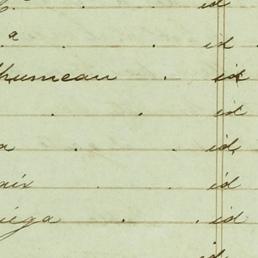 id
a id
humeau . id
. . id
a . . id
aix . . id
iega . . id
id